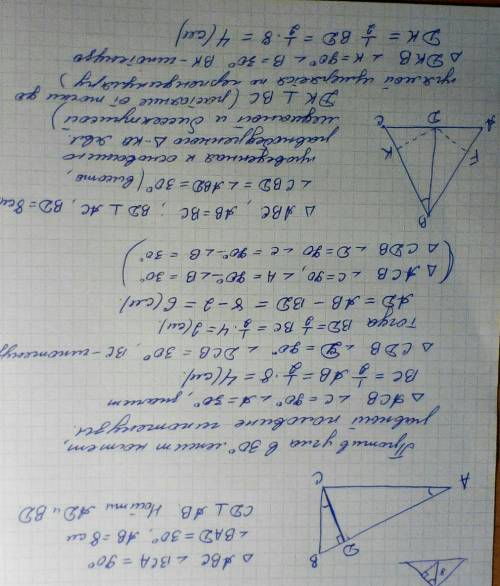 △ ABC ∠BCA = 90°
∠BAD = 30°, AB = 8 см
CD ⊥ AB. Найти AD и BD
A
B
C
D
Против угла в 30° лежит катет,
равный половине гипотенузы
△ ACB ∠C = 90° ∠A = 30°, значит
BC = 1/2 AB = 1/2 · 8 = 4 (см)
△ CDB ∠D = 90° ∠DCB = 30°, BC - гипотенуза
Тогда BD = 1/2 BC = 1/2 · 4 = 2 (см)
AD = AB - BD = 8 - 2 = 6 (см)
(△ ACB ∠C = 90, ∠A = 90° - ∠B = 30°
△ CDB ∠D = 90 ∠C = 90° - ∠B = 30°)
△ ABC, AB = BC; BD ⊥ AC, BD = 8 см
∠CBD = ∠ABD = 30° (высота,
проведенная к основанию
равнобедренного △-ка явл.
медианой и биссектрисой)
DK ⊥ BC (расстояние от точки до
прямой измеряется по перпендикуляру)
△ DKB ∠K = 90° ∠B = 30° BK - гипотенуза
DK = 1/2 BD = 1/2 · 8 = 4 (см)
B
F
K
A
D
C